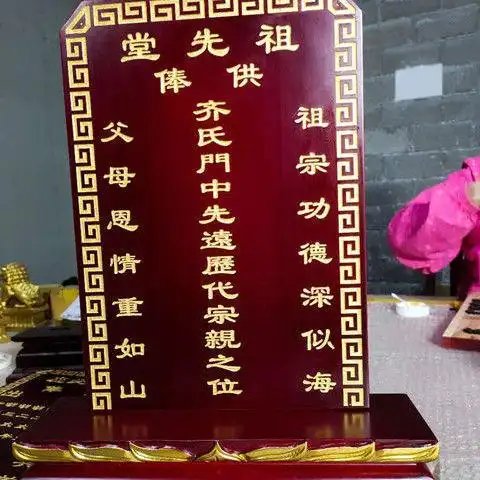 祖先堂
供俸
祖宗功德深似海
齐氏門中先遠歷代宗親之位
父母恩情重如山